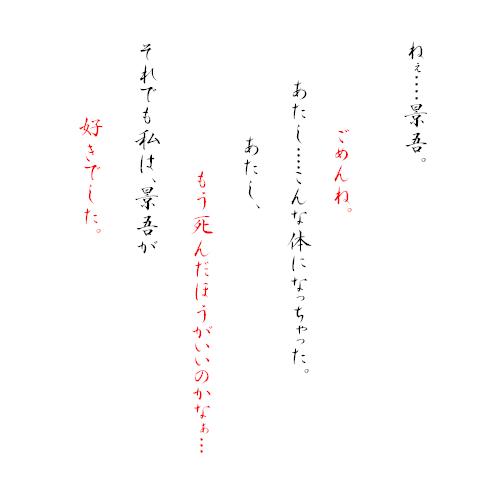 ねぇ……景吾。
ごめんね。
あたし……こんな体になっちゃった。
あたし、
もう死んだほうがいいのかなぁ…
それでも私は、景吾が
好きでした。